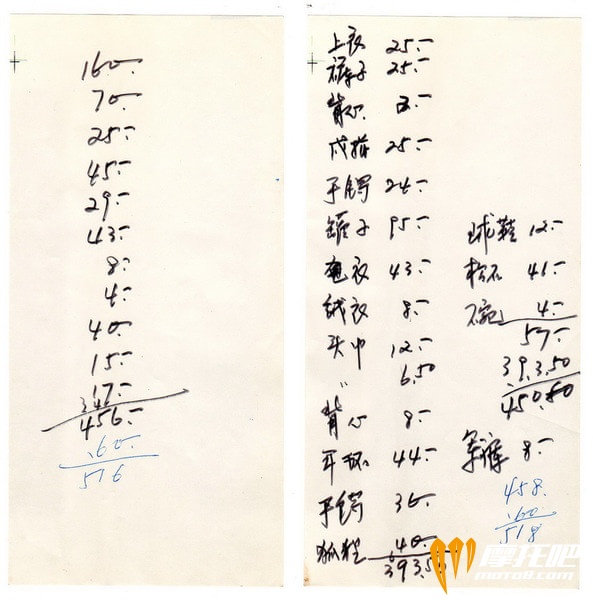 160.-
70.-
25.-
45.-
29.-
43.-
8.-
4.-
40.-
15.-
17.-
456.-
60.-
516
上衣 25.-
裤子 25.-
背心 2.-
戒指 25.-
手镯 24.-
罐子 95.-
毛衣 43.-
绒衣 8.-
头巾 12.-
〃 6.50
背心 8.-
耳环 44.-
手镯 36.-
狐狸 40.-
393.50
球鞋 12.-
松石 41.-
石碗 4.-
57.-
393.50
450.50
军裤 8.-
458.
60
518
摩托吧
moto8.com